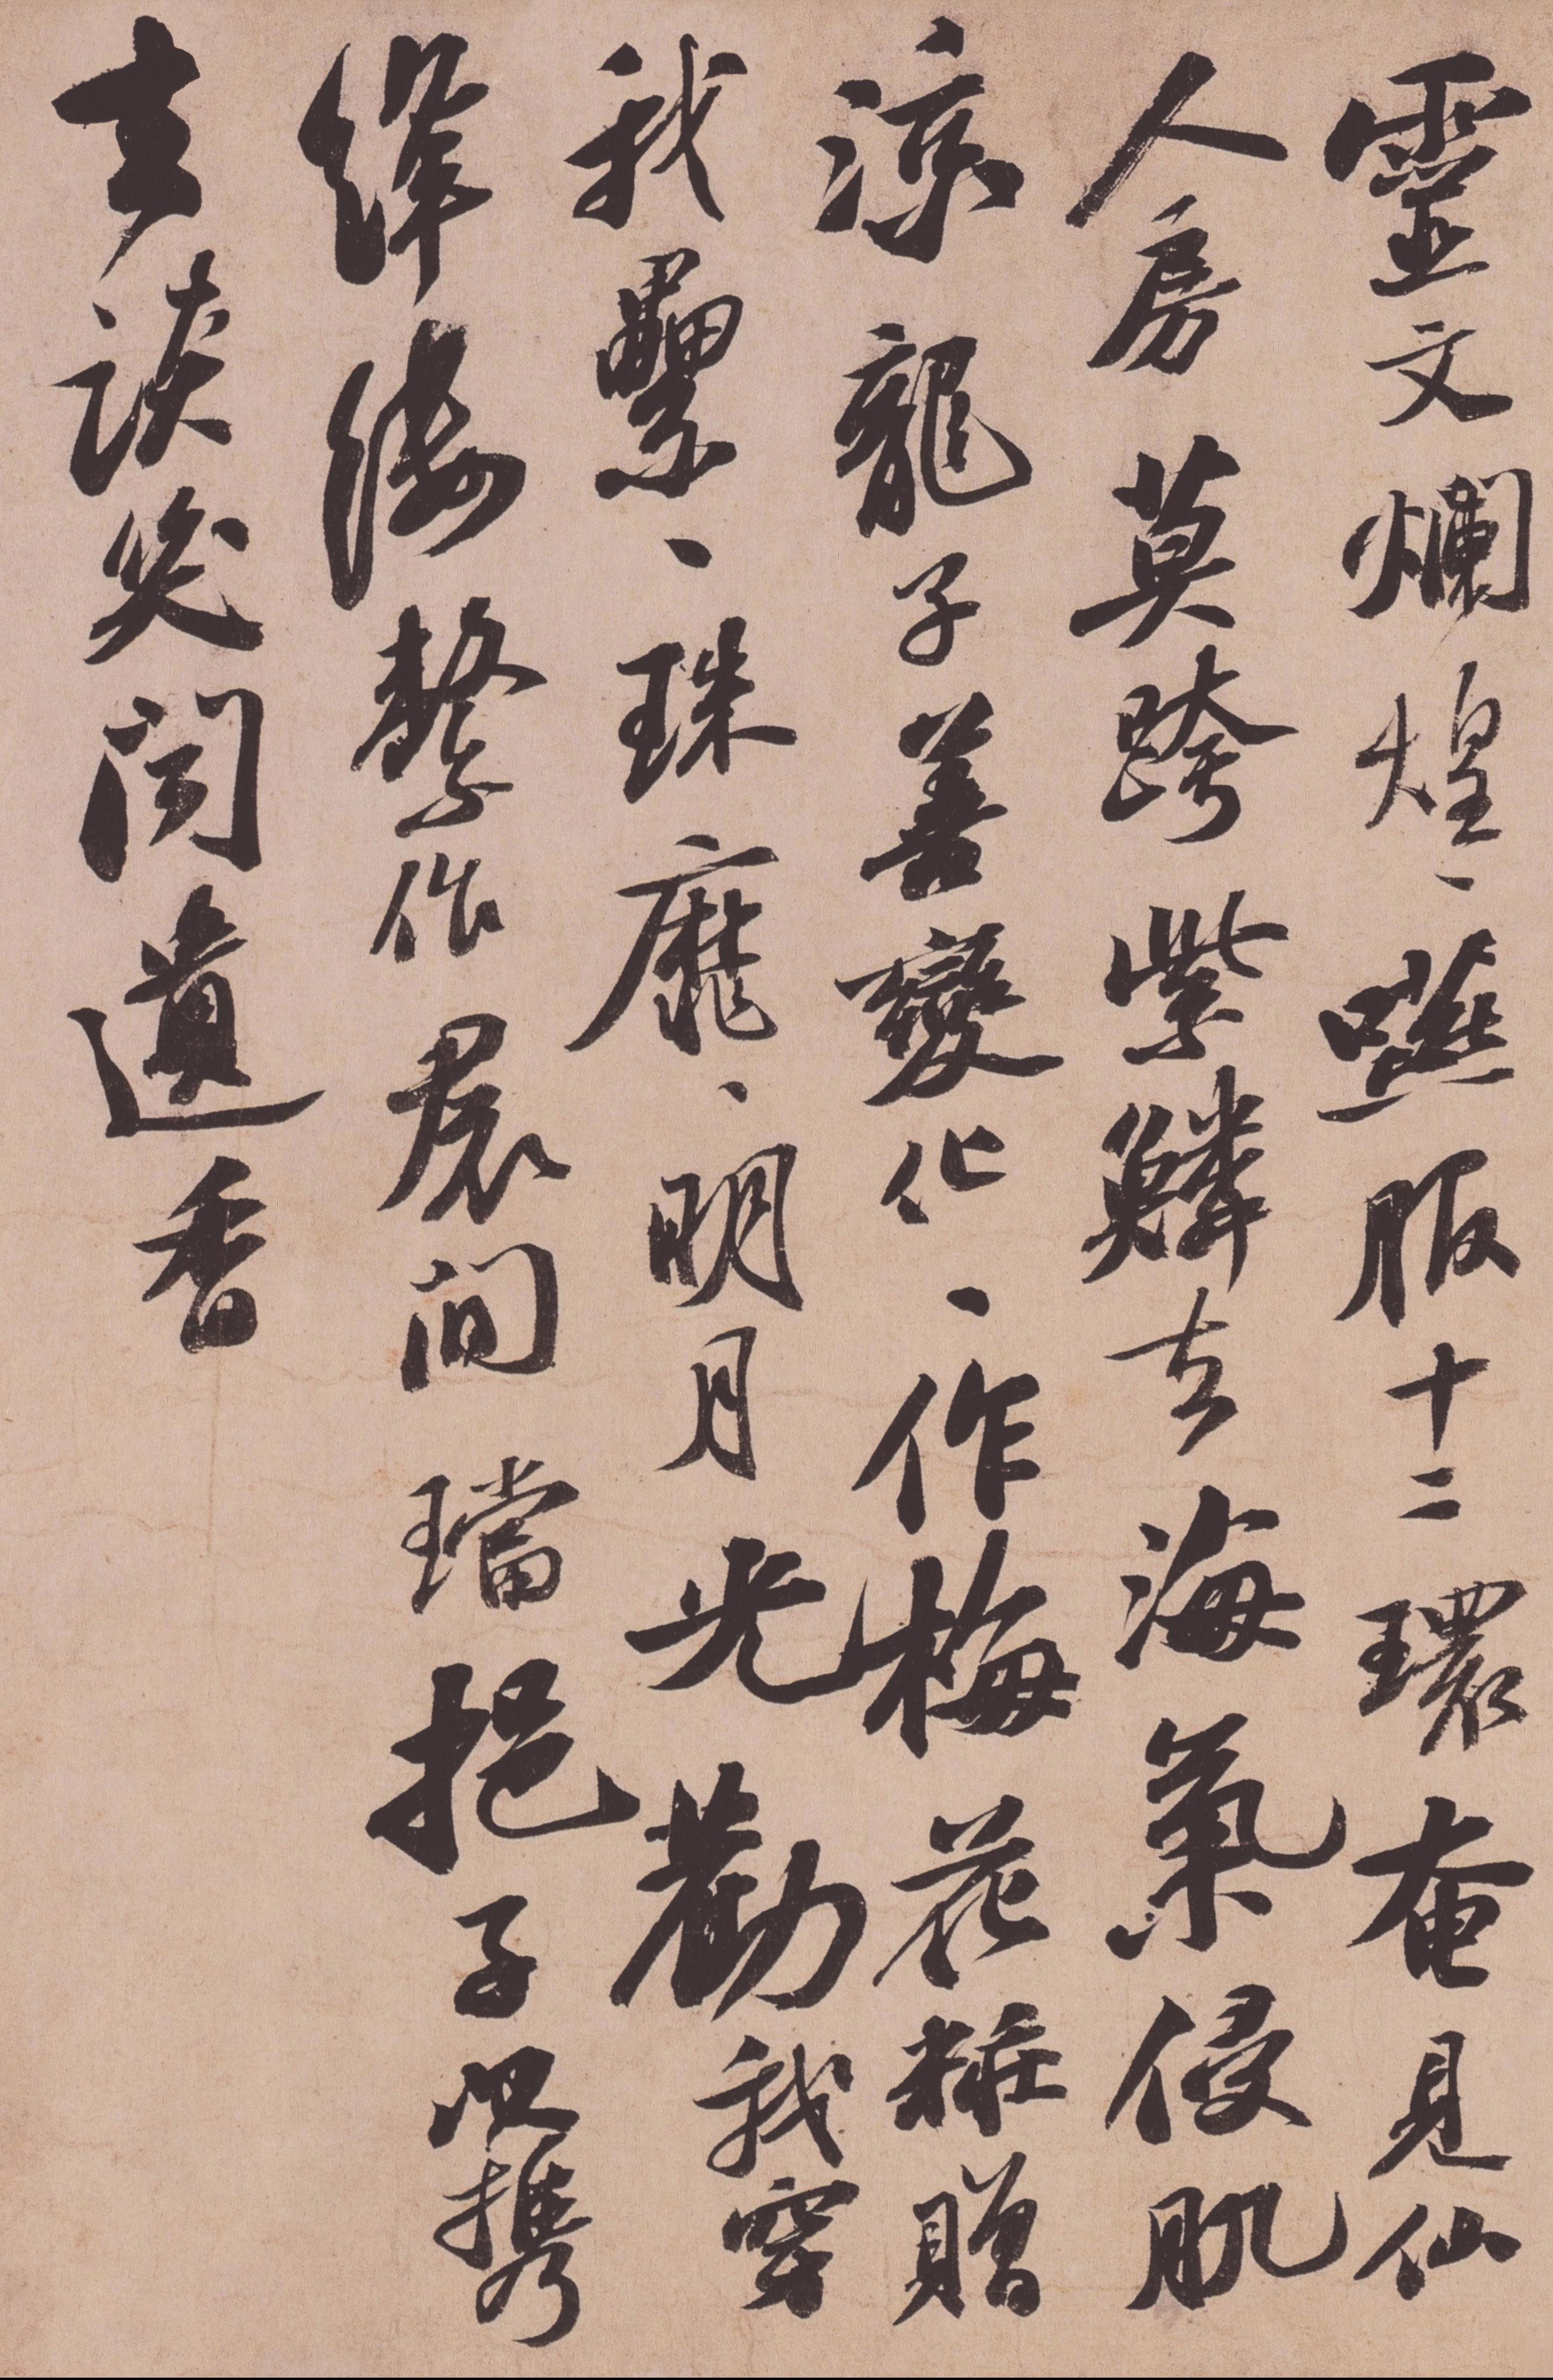 靈文爛煌、嚥服十二環奄見仙
人房莫跨紫鱗去海氣侵肌
涼龍子善變化、作梅花粧贈
我纍、珠靡、明月光勸我穿
絳縷繫作裠間璫挹子以攜
去談笑聞遺香